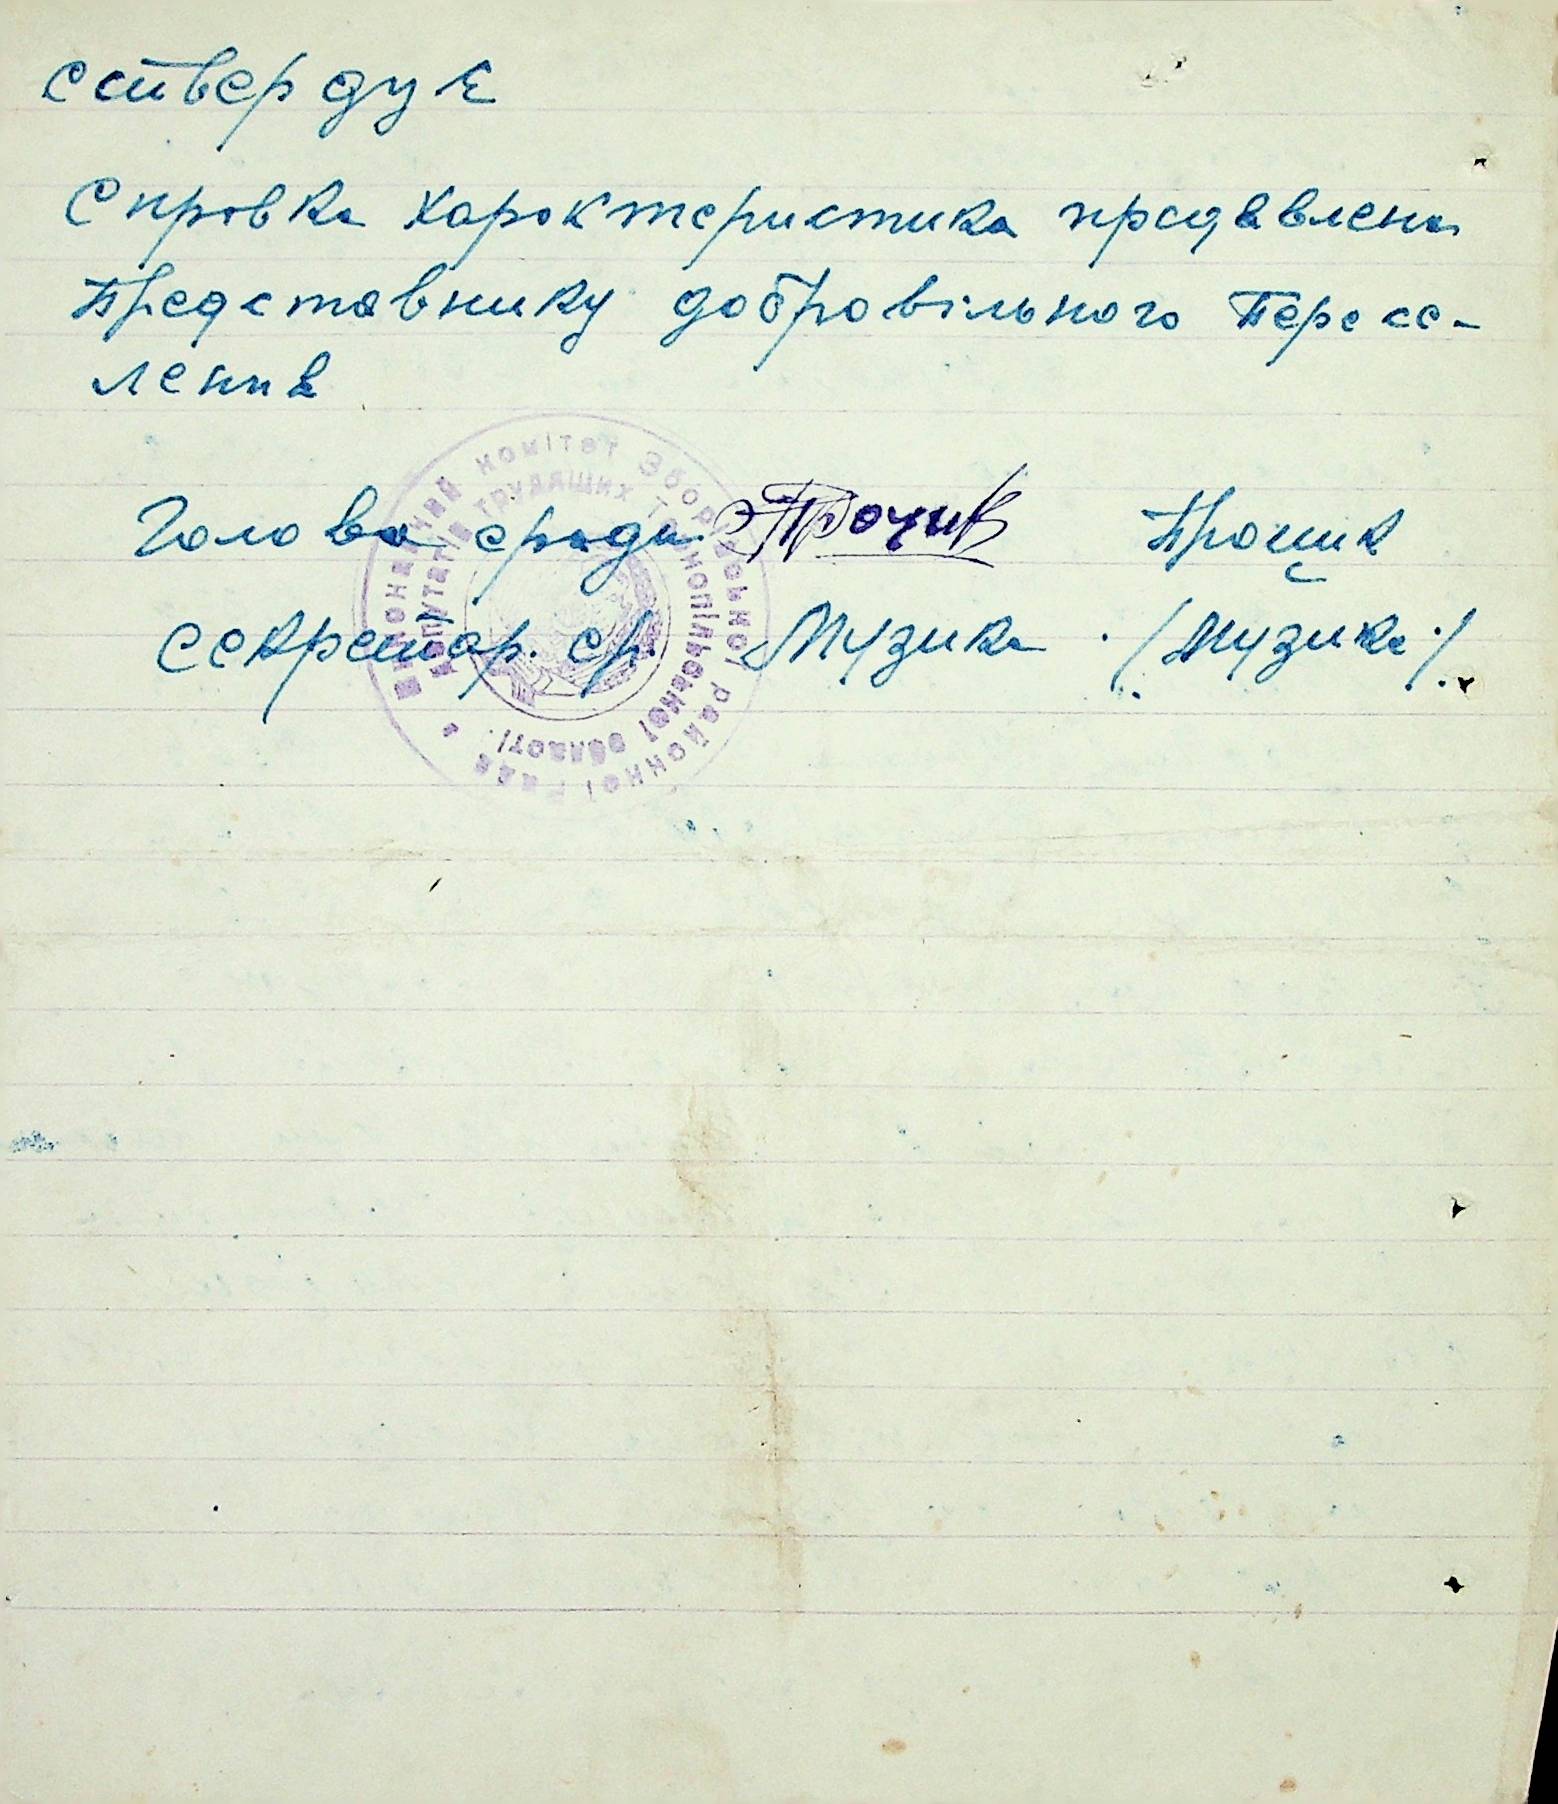 стверджує
Справка характеристика предявлена
Представнику добровільного пересе-
ления
Голова с/ради Процив Процик
Секретар. с/р. Музика ./Музика./
Виконавчий комітет Зборівської районної Ради
депутатів трудящих Тернопільської області